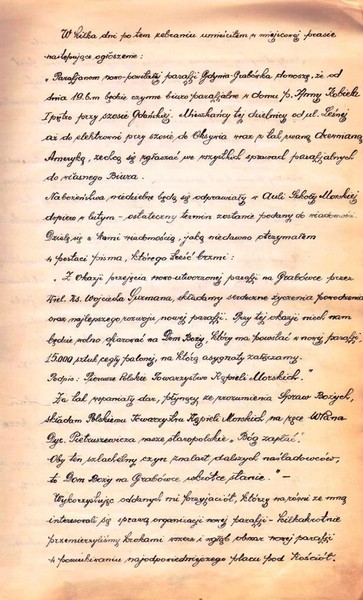 W kilka dni po tem zebraniu umieściłem w miejscowej prasie
następujące ogłoszenie:
"Parafjanom nowo-powstałej parafji Gdynia-Grabówka donoszę, że od
dnia 19.b.m będzie czynne biuro parafjalne w domu p. Anny Kobicki
I piętro przy szosie Gdańskiej. Mieszkańcy tej dzielnicy od ul. Leśnej
aż do elektrowni przy szosie do Oksywia wraz z tak zwaną drewnianą
Ameryką, zechcą się zgłaszać we wszystkich sprawach parafjalnych
do własnego Biura.
Nabożeństwa niedzielne będą się odprawiały w Auli Szkoły Morskiej
dopiero w lutym - ostateczny termin zostanie podany do wiadomości.
Dzielę się z Wami wiadomością, jaką niedawno otrzymałem
w postaci pisma, którego treść brzmi:
"Z Okazji przejęcia nowo-utworzonej parafji na Grabówce przez
Wiel. Ks. Wojciecha Gurmana, składamy serdeczne życzenia powodzenia
oraz najlepszego rozwoju nowej parafji. Przy tej okazji niech nam
będzie wolno ofiarować na Dom Boży, który ma powstać w nowej parafji
15.000 sztuk cegły palonej, na którą asygnaty załączamy.
Podpis: Pierwsze Polskie Towarzystwo Kąpieli Morskich."
Za tak wspaniały dar, płynący ze zrozumienia Spraw Bożych,
składam Polskiemu Towarzystwu Kąpieli Morskich na ręce WPana
Dyr. Pietruszewicza nasze staropolskie "Bóg zapłać".
Oby ten szlachetny czyn znalazł dalszych naśladowców,
to Dom Boży na Grabówce wkrótce stanie." -
Wykorzystując oddanych mi przyjaciół, którzy na równi ze mną
interesowali się sprawą organizacji nowej parafji - kilkakrotnie
przemierzyliśmy krokami wszerz i wzdłuż obszar nowej parafji
w poszukiwaniu najodpowiedniejszego placu pod Kościół.